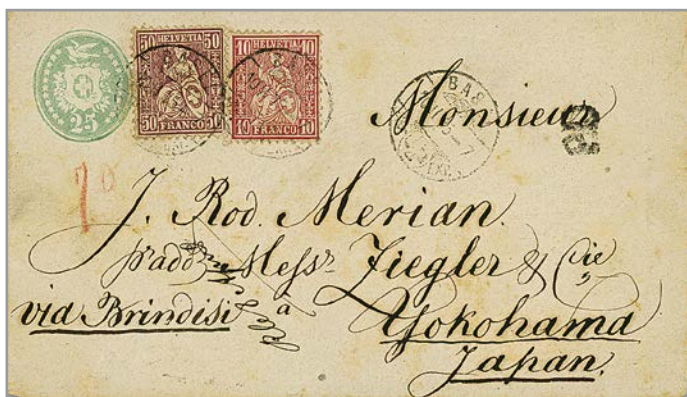 50 HELVETIA 50
50 FRANCO 50
10 HELVETIA 10
10 FRANCO 10
25
BAS
Monsieur
PD
J. Rod. Merian.
p. add Mess.rs Ziegler & Cie
à
via Brindisi
Yokohama
Japan.